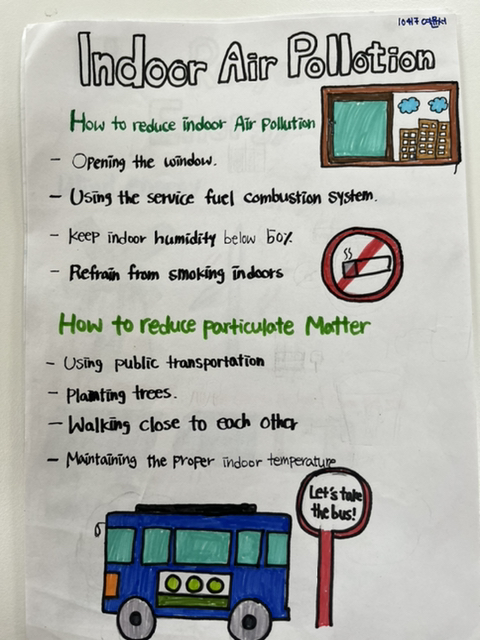 10417 여윤서
Indoor Air Pollution
How to reduce indoor Air Pollution
- Opening the window.
- Using the service fuel combustion system.
- Keep indoor humidity below 50%
- Refrain from smoking indoors
How to reduce particulate Matter
- Using public transportation
- Planting trees.
- Walking close to each other
- Maintaining the proper indoor temperature
Let's take
the bus!